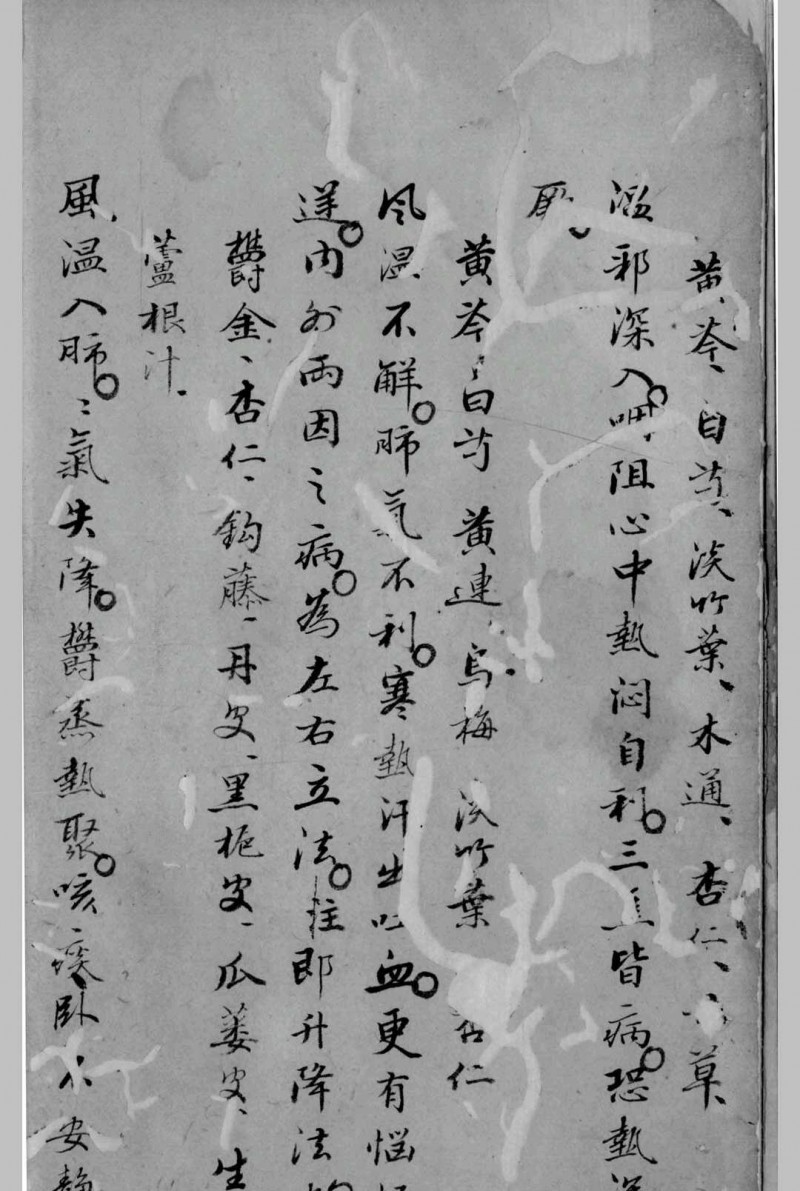 黄芩、白芍、淡竹葉、木通、杏仁、草
邪深入呷阻心中熱悶自利三焦皆病恐熱深
厥
黄芩白芍黄連烏梅淡竹葉杏仁
风温不解肺氣不利寒熱汗出吐血更有惱
逆内外兩因之病為左右立法柱即升降法
欝金、杏仁、鈎藤、丹皮、黑栀皮、瓜蒌皮、生
蘆根汁
風温入肺肺氣失降欝蒸熱聚咳痰卧不安静